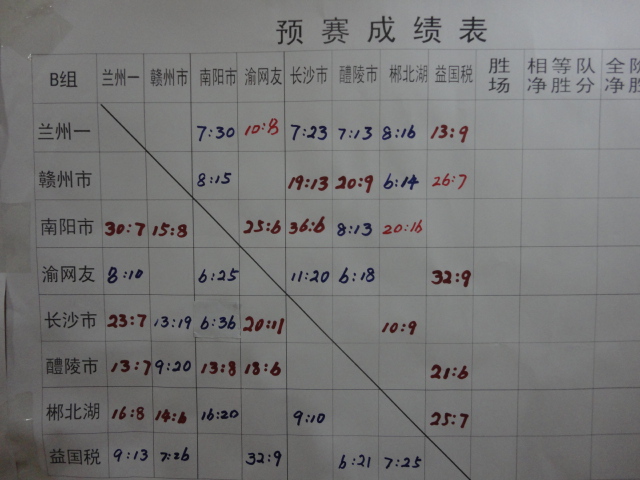 预赛成绩表
B组 兰州一 赣州市 南阳市 渝网友 长沙市 醴陵市 郴北湖 益国税 胜场 相等队净胜分 全阶净胜
兰州一 7:30 10:8 7:23 7:13 8:16 13:9
赣州市 8:15 19:13 20:9 6:14 26:7
南阳市 30:7 15:8 25:6 36:6 8:13 20:16
渝网友 8:10 6:25 11:20 6:18 32:9
长沙市 23:7 13:19 6:36 20:11 10:9
醴陵市 13:7 9:20 13:8 18:6 21:6
郴北湖 16:8 14:6 16:20 9:10 25:7
益国税 9:13 7:26 32:9 6:21 7:25